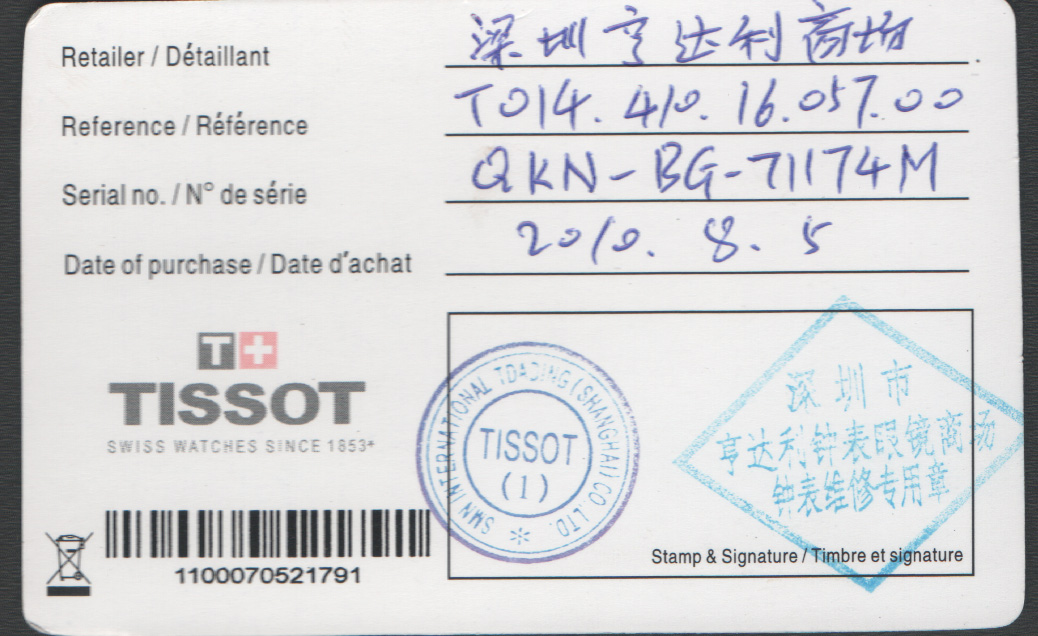 Retailer / Détaillant 深圳亨达利商场
Reference / Référence T014.410.16.057.00
Serial no. / N° de série QKN-BG-71174M
Date of purchase / Date d'achat 2010.8.5
T+
TISSOT
SWISS WATCHES SINCE 1853+
1100070521791
SMN INTERNATIONAL TDADING (SHANGHAI) CO.LTD.
TISSOT
(1)
深圳市
亨达利钟表眼镜商场
钟表维修专用章
Stamp & Signature / Timbre et signature